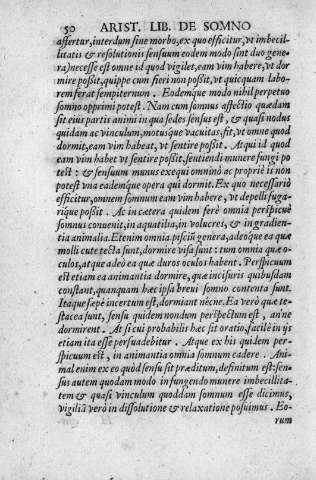 50 ARIST. LIB. DE SOMNO
affertur, interdum sine morbo, ex quo efficitur, vt imbecil-
litatis & resolutionis sensuum eodem modo sint duo gene-
ra) necesse est omne id quod vigilet, eam vim habere, vt dor
mire possit, quippe cum fieri non possit, vt quicquam labo-
rem ferat sempiternum. Eodemque modo nihil perpetuo
somno opprimi potest. Nam cum somnus affectio quædam
sit eius partis animi in qua sedes sensus est, & quasi nodus
quidam ac vinculum, motusque vacuitas, fit, vt omne quod
dormit, eam vim habeat, vt sentire possit. At qui id quod
eam vim habet vt sentire possit, sentiendi munere fungi po
test: & sensuum munus exequi omnino ac proprie is non
potest vna eademque opera qui dormit. Ex quo necessario
efficitur, omnem somnum eam vim habere, vt depelli fuga-
rique possit. Ac in cætera quidem ferè omnia perspicuè
somnus conuenit, in aquatilia, in volucres, & in gradien-
tia animalia. Etenim omnia pisciū genera, adeoque ea quæ
molli cute tecta sunt, dormire visa sunt: tum omnia quæ o-
culos, atque adeo ea quæ duros oculos habent. Perspicuum
est etiam ea animantia dormire, quæ incisuris quibusdam
constant, quanquam hæc ipsa breui somno contenta sunt.
Itaque sæpè incertum est, dormiant nécne. Ea verò quæ te-
stacea sunt, sensu quidem nondum perspectum est, an'ne
dormirent. At si cui probabilis hæc sit oratio, facilè in ijs
etiam ita esse persuadebitur. Atque ex his quidem per-
spicuum est, in animantia omnia somnum cadere. Ani-
mal enim ex eo quòd sensu sit præditum, definitum est: sen-
sus autem quodam modo in fungendo munere imbecillita-
tem & quasi vinculum quoddam somnum esse dicimus,
vigiliā verò in dissolutione & relaxatione posuimus. Eo-
rum